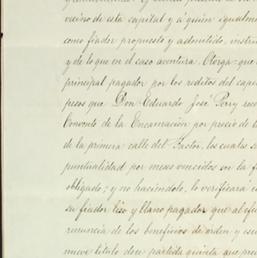 vecino de esta capital y á quien igualmen
como fiador propuesto y admitido, instru
y de lo que en el caso aventura. Otorga= que
principal pagador por los reditos del capi
pesos que Don Eduardo José Perry rec
Convento de la Encarnacion por precio de l
de la primera calle del Factor, los cuales s
puntualidad por meses vencidos en la f
obligado; y no haciendolo, lo verificará e
su fiador liso y llano pagador que al efe
renuncia de los beneficios de orden y escu
nueve titulo doce partida quinta que pre